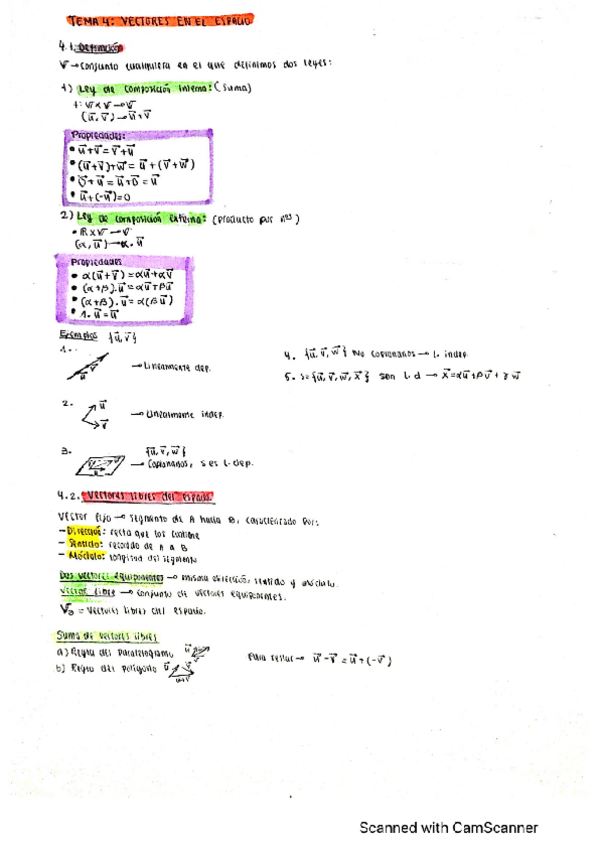 TEMA 4: VECTORES EN EL ESPACIO
4.1. Definición
V → Conjunto cualquiera en el que definimos dos leyes:
1) Ley de composición interna: (suma)
+: V x V → V
(u⃗, v⃗) → u⃗ + v⃗
Propiedades:
• u⃗ + v⃗ = v⃗ + u⃗
• (u⃗ + v⃗) + w⃗ = u⃗ + (v⃗ + w⃗)
• 0⃗ + u⃗ = u⃗ + 0⃗ = u⃗
• u⃗ + (-u⃗) = 0
2) Ley de composición externa: (producto por nºs)
• R x V → V
(α, u⃗) → α · u⃗
Propiedades
• α(u⃗ + v⃗) = αu⃗ + αv⃗
• (α+β) · u⃗ = αu⃗ + βu⃗
• (α+β) · u⃗ = α(βu⃗)
• 1 · u⃗ = u⃗
Ejemplos {u⃗, v⃗}
1.
→ Linealmente dep.
2.
→ Linealmente indep.
3. {u⃗, v⃗, w⃗}
→ Coplanarios, s es l. dep.
4. {u⃗, v⃗, w⃗} No coplanarios → l. indep.
5. s = {u⃗, v⃗, w⃗, x⃗} son l.d → x⃗ = αu⃗ + βv⃗ + γw⃗
4.2. Vectores libres del espacio
Vector fijo → segmento de A hacia B, caracterizado por:
- Dirección: recta que los contiene
- Sentido: recorrido de A a B
- Módulo: longitud del segmento
Dos vectores equipolentes → misma dirección, sentido y módulo.
Vector libre → conjunto de vectores equipolentes.
V₃ = vectores libres del espacio.
Suma de vectores libres
a) Regla del paralelogramo
b) Regla del polígono
Para restar → u⃗ - v⃗ = u⃗ + (-v⃗)
Scanned with CamScanner